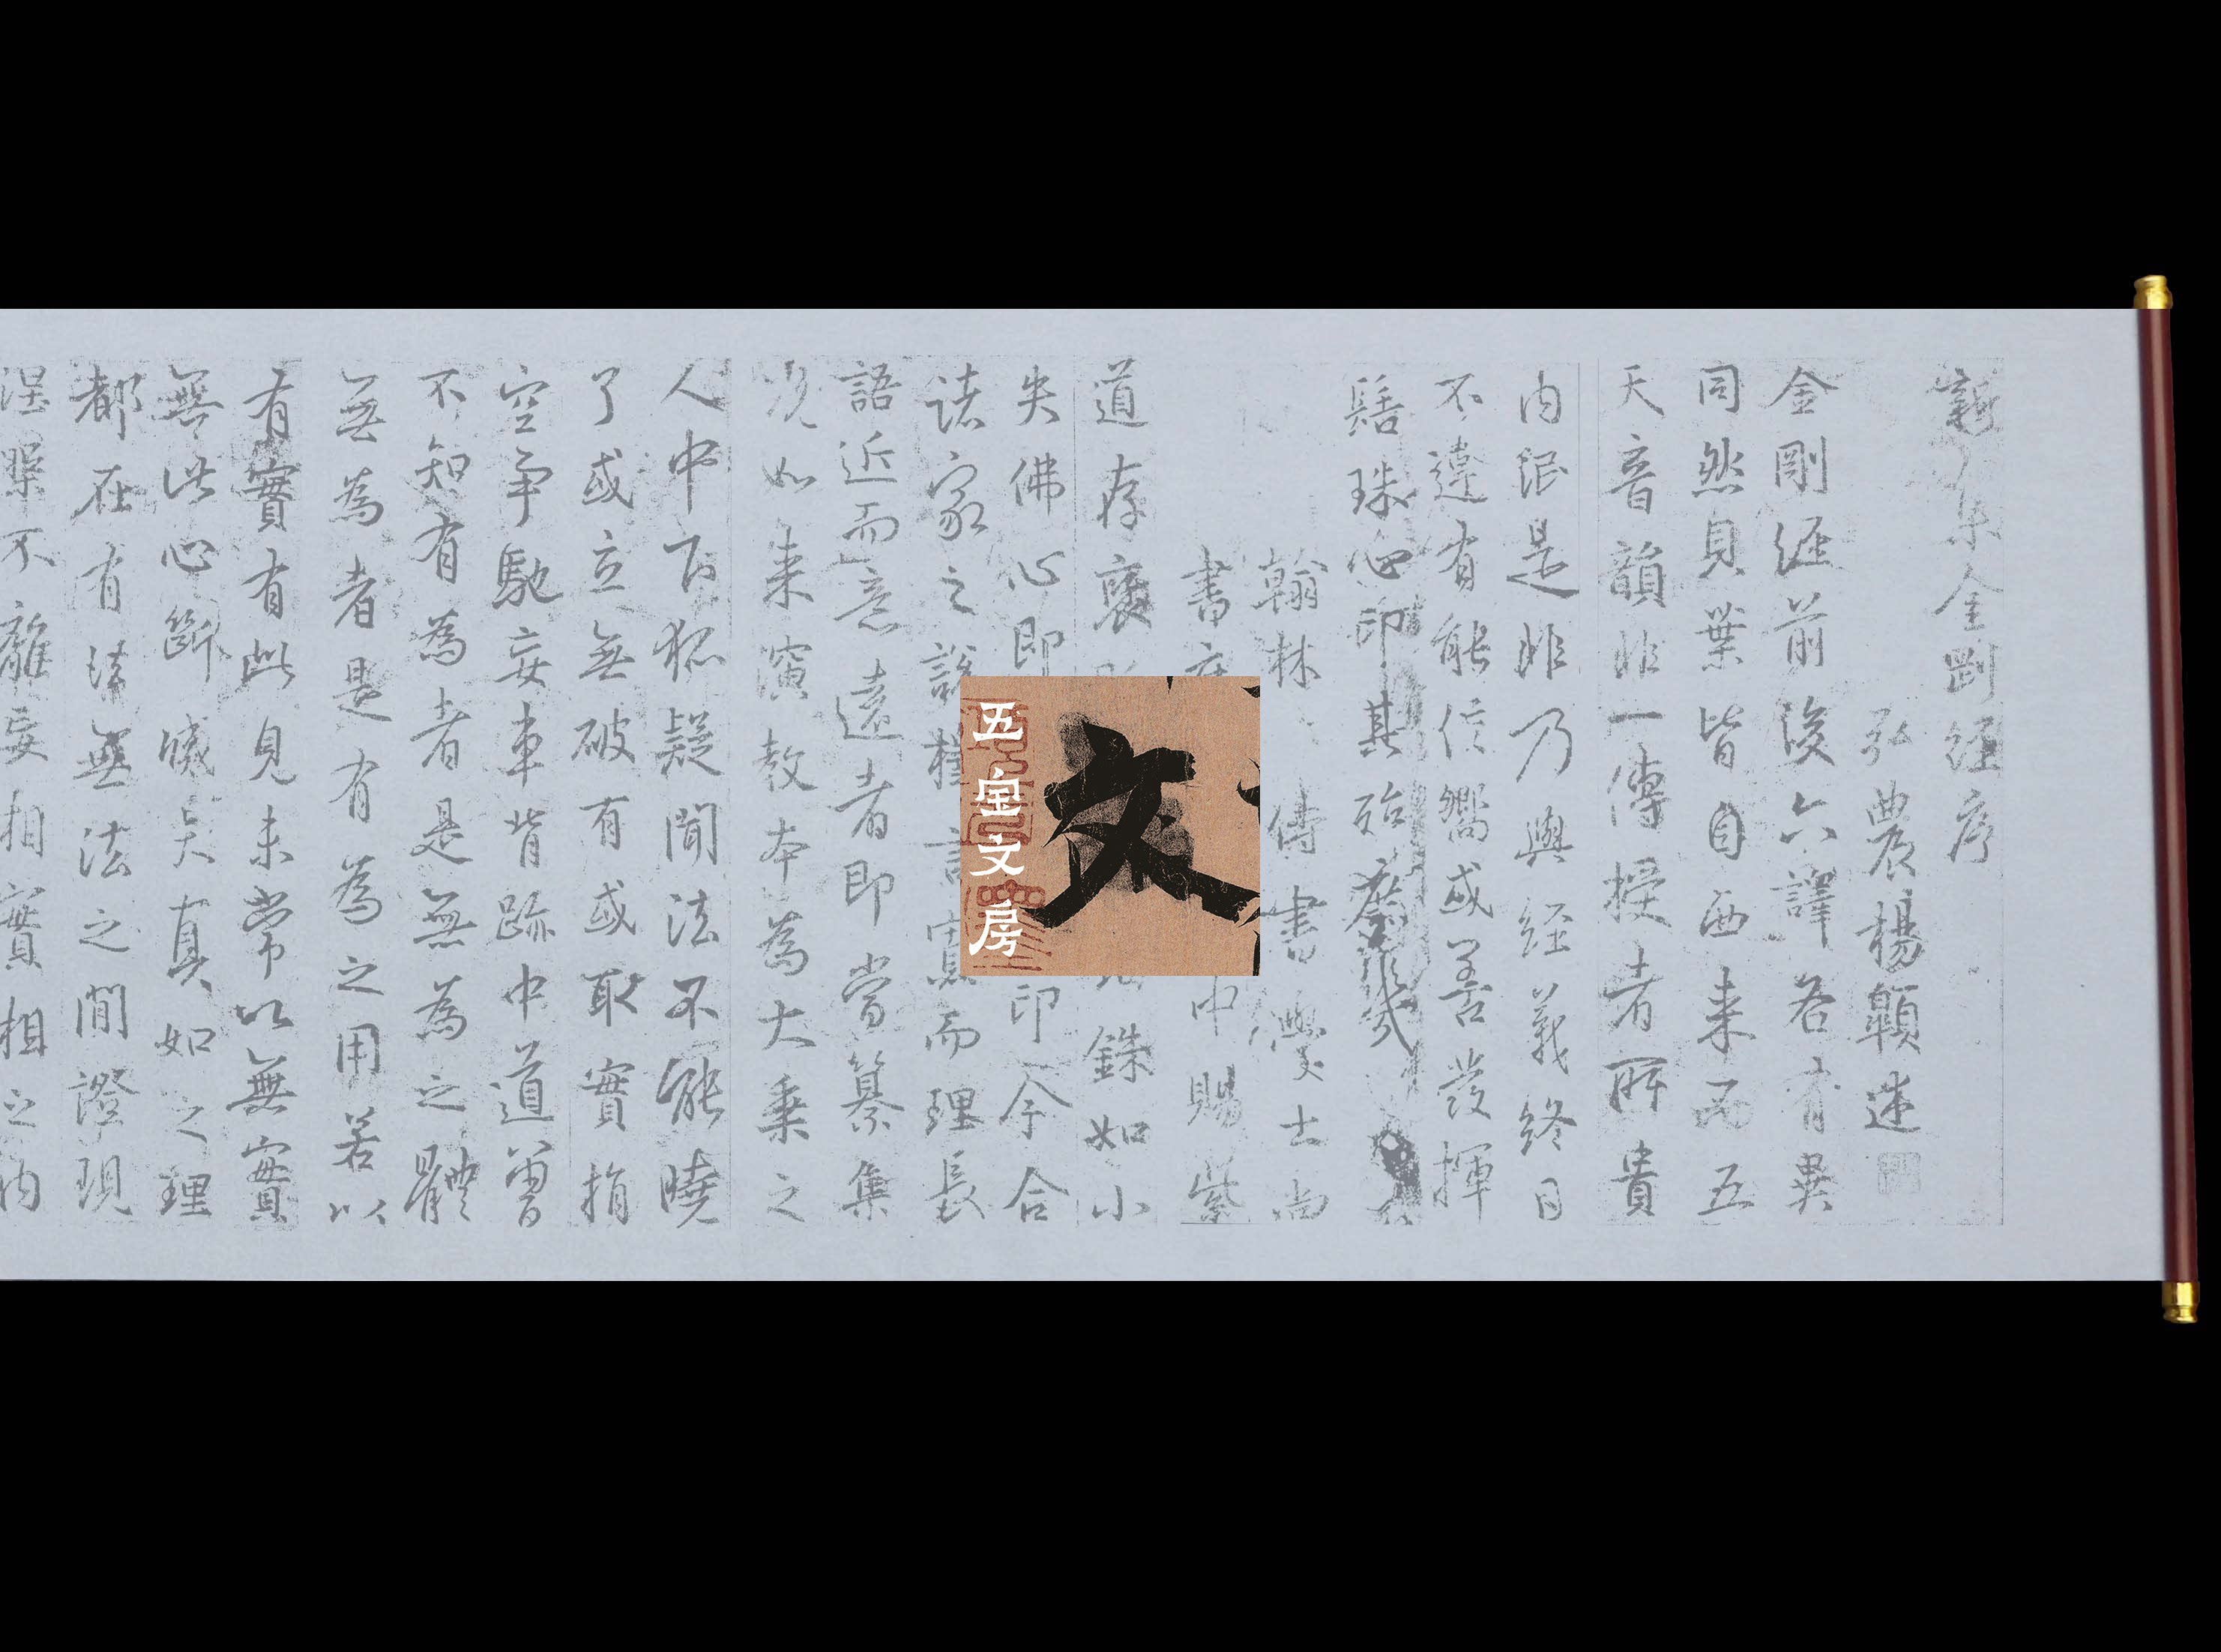 新集金剛經序
弘農楊顗述
金剛經前後六譯各有異
同然貝葉皆自西来而五
天音韻非一傳授者所貴
内泯是非乃與經義終日
不違有能信嚮或善發揮
髻珠心印其殆庶幾
翰林 傅書學士尚
書 中賜紫
道存 銖如小
失佛心即 印今合
諸家之說 而理長
語近而意遠者即當纂集
况如来演教本為大乗之
人中下狐疑聞法不能曉
了或立無破有或取實捐
空争馳妄車背跡中道曾
不知有為者是無為之體
無為者是有為之用若以
有實有此見未常以無實
無此心斷滅矣真如之理
都在有法無法之間證現
涅槃不離妄相實相之内
五宝文房